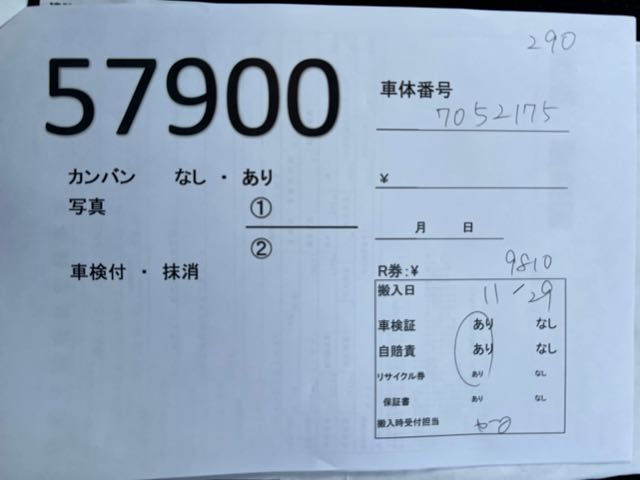 290
57900
車体番号
7052175
カンバン なし ・ あり
¥
写真 ①
②
月 日
車検付 ・ 抹消
R券:¥ 9810
搬入日 11/29
車検証 あり なし
自賠責 あり なし
リサイクル券 あり なし
保証書 あり なし
搬入時受付担当